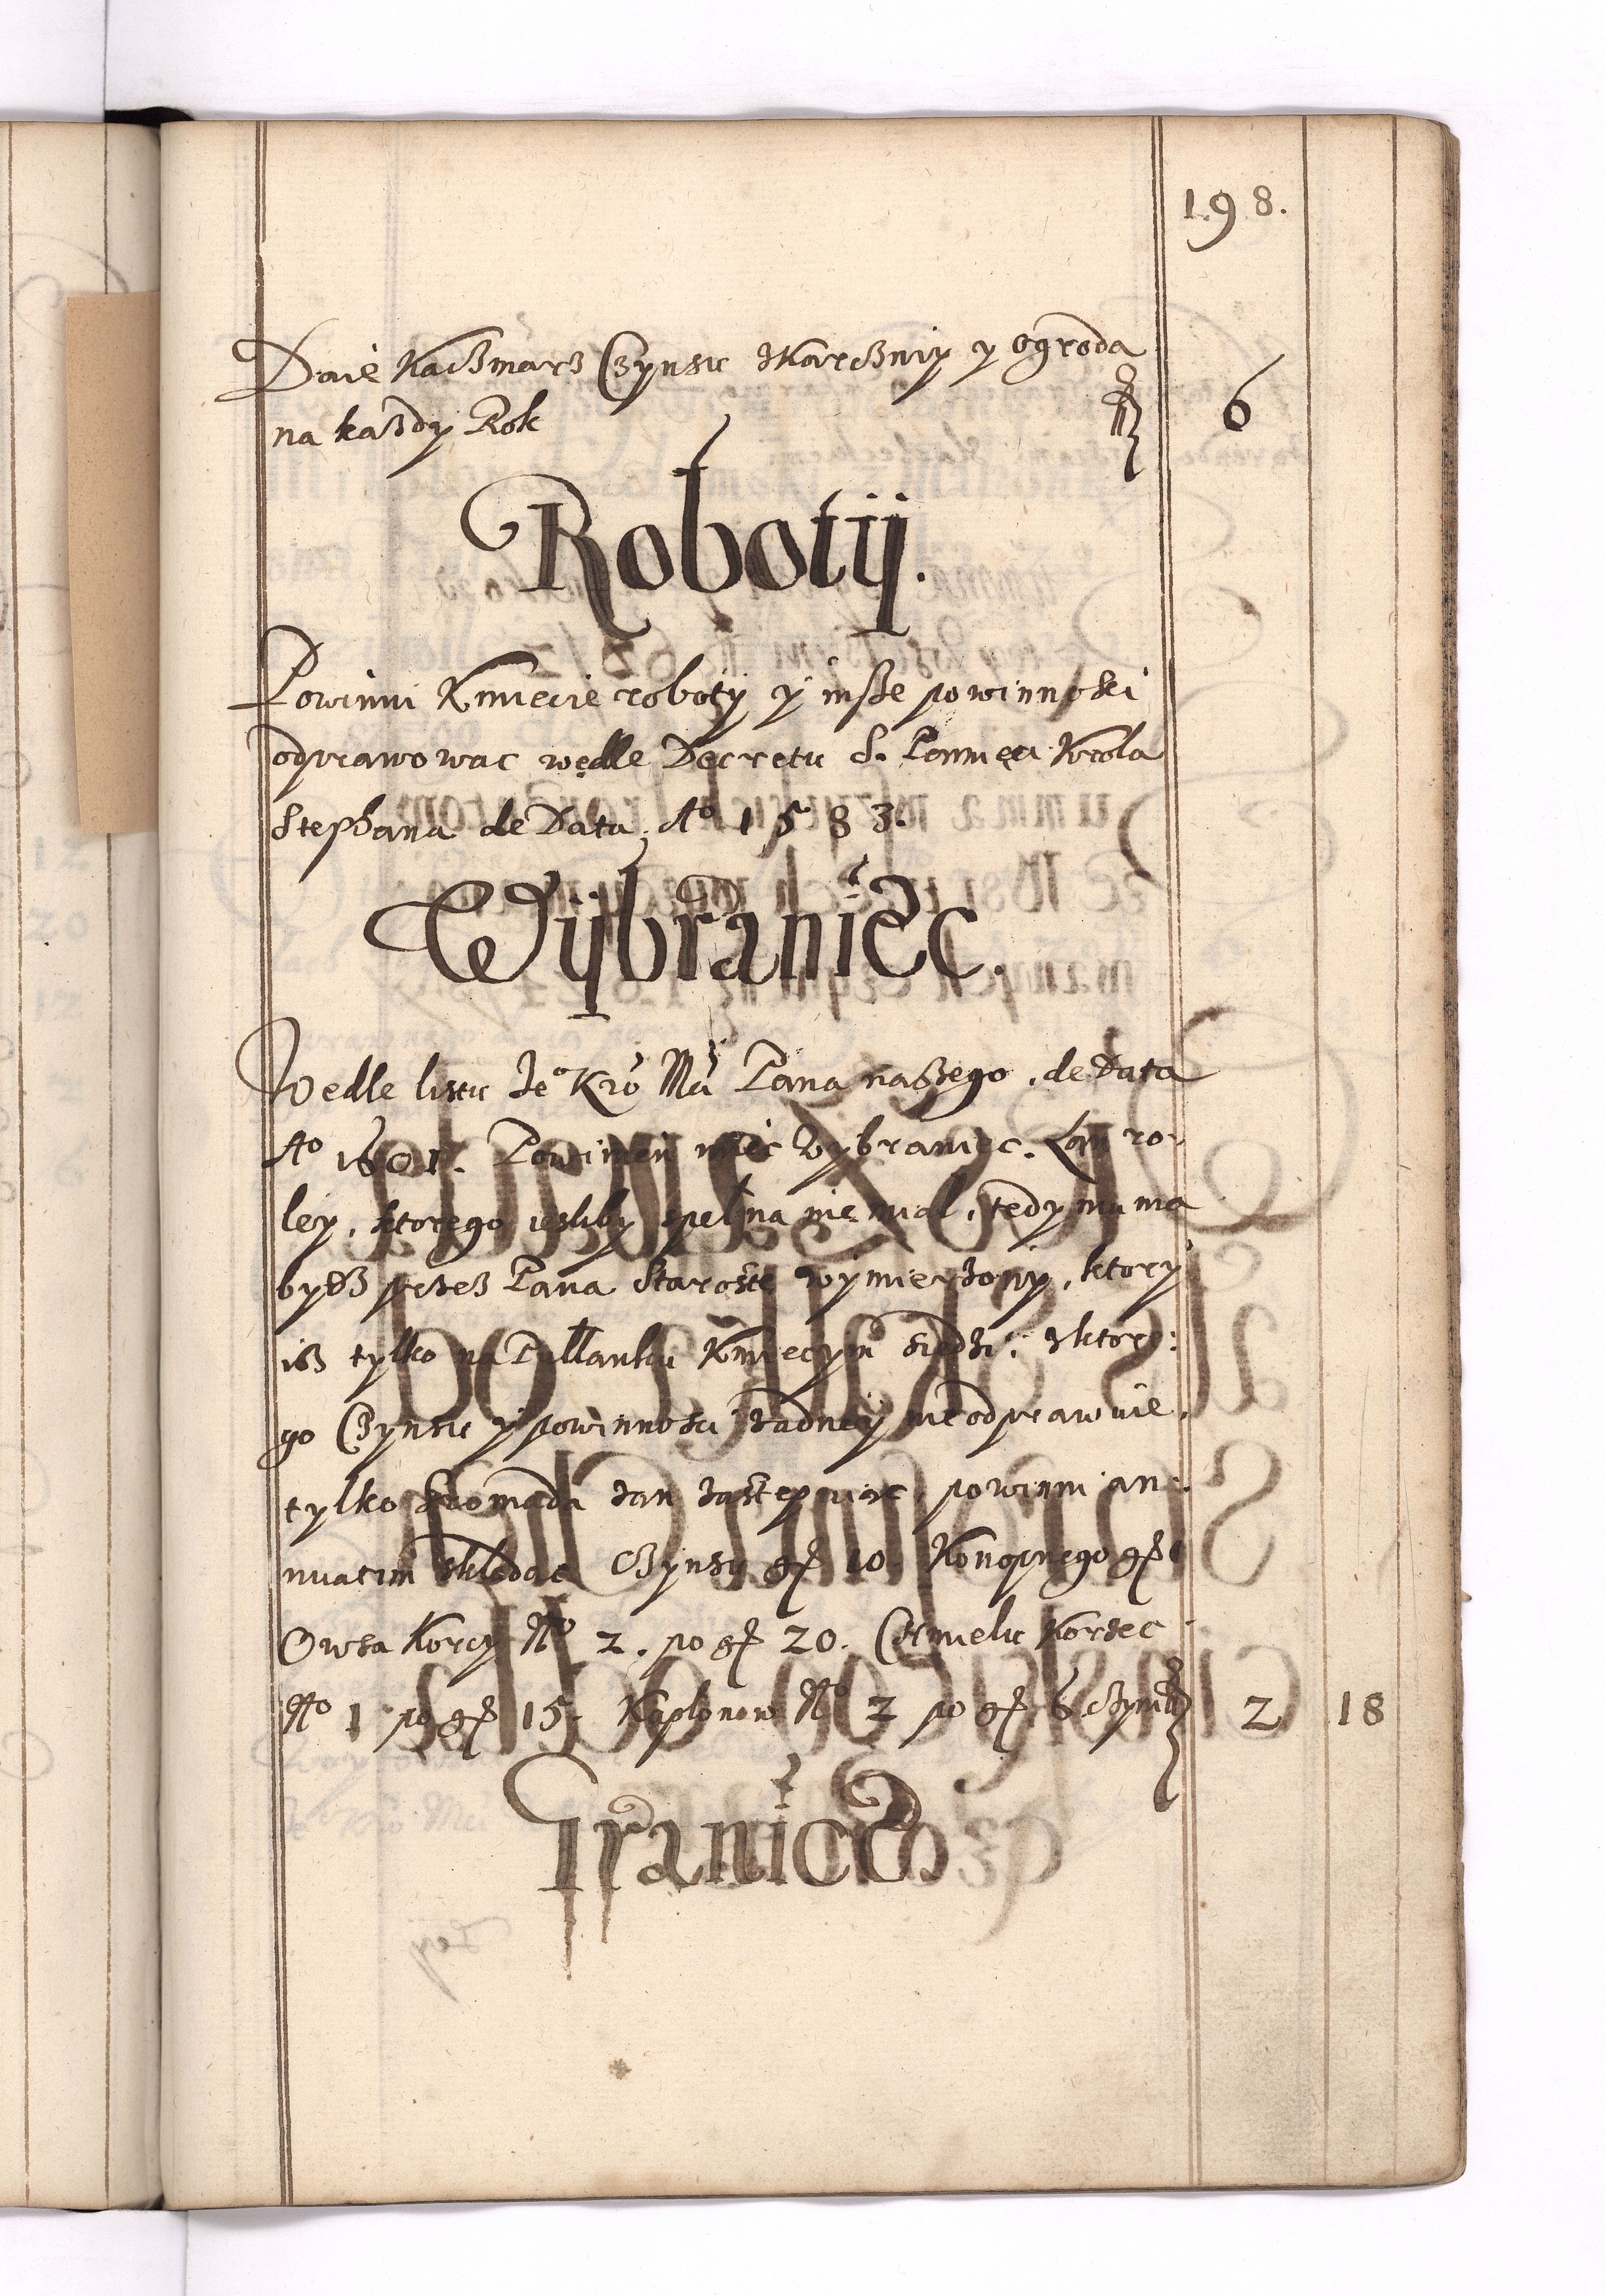 198.
Daie Kaczmarz Czynszu zKarczmy y ogroda
na kazdy Rok 6
Robotij.
Powinni Kmiecie roboty y insze powinnosci
odprawowac wedle Decretu S. Pamięci Krola
Stephana de Data Aº 1583.
Wijbraniec.
Wedle listu Jeº Kro Mci Pana naszego. de Data
Aº 1601. Powinien miec Wybraniec. Łan ro-
ley, ktorego iesliby spełna nie miał, tedy mu ma
bydz przez Pana Starostę wymierzony, ktory
isz tylko na Pułłanku Kmiecym siedzi: zktore:
go Czynszu y powinnosci zadney nie odprawuie,
tylko Gromada zan zastępuiąc, powinni an-
nuatim składac Czynszu gr 10. Konopnego gr
Owsa Korcy Nº 2. po gr 20. Chmielu Korzec
Nº 1 po gr 15. Kapłonow Nº 2 po gr 6 czyni 2 18